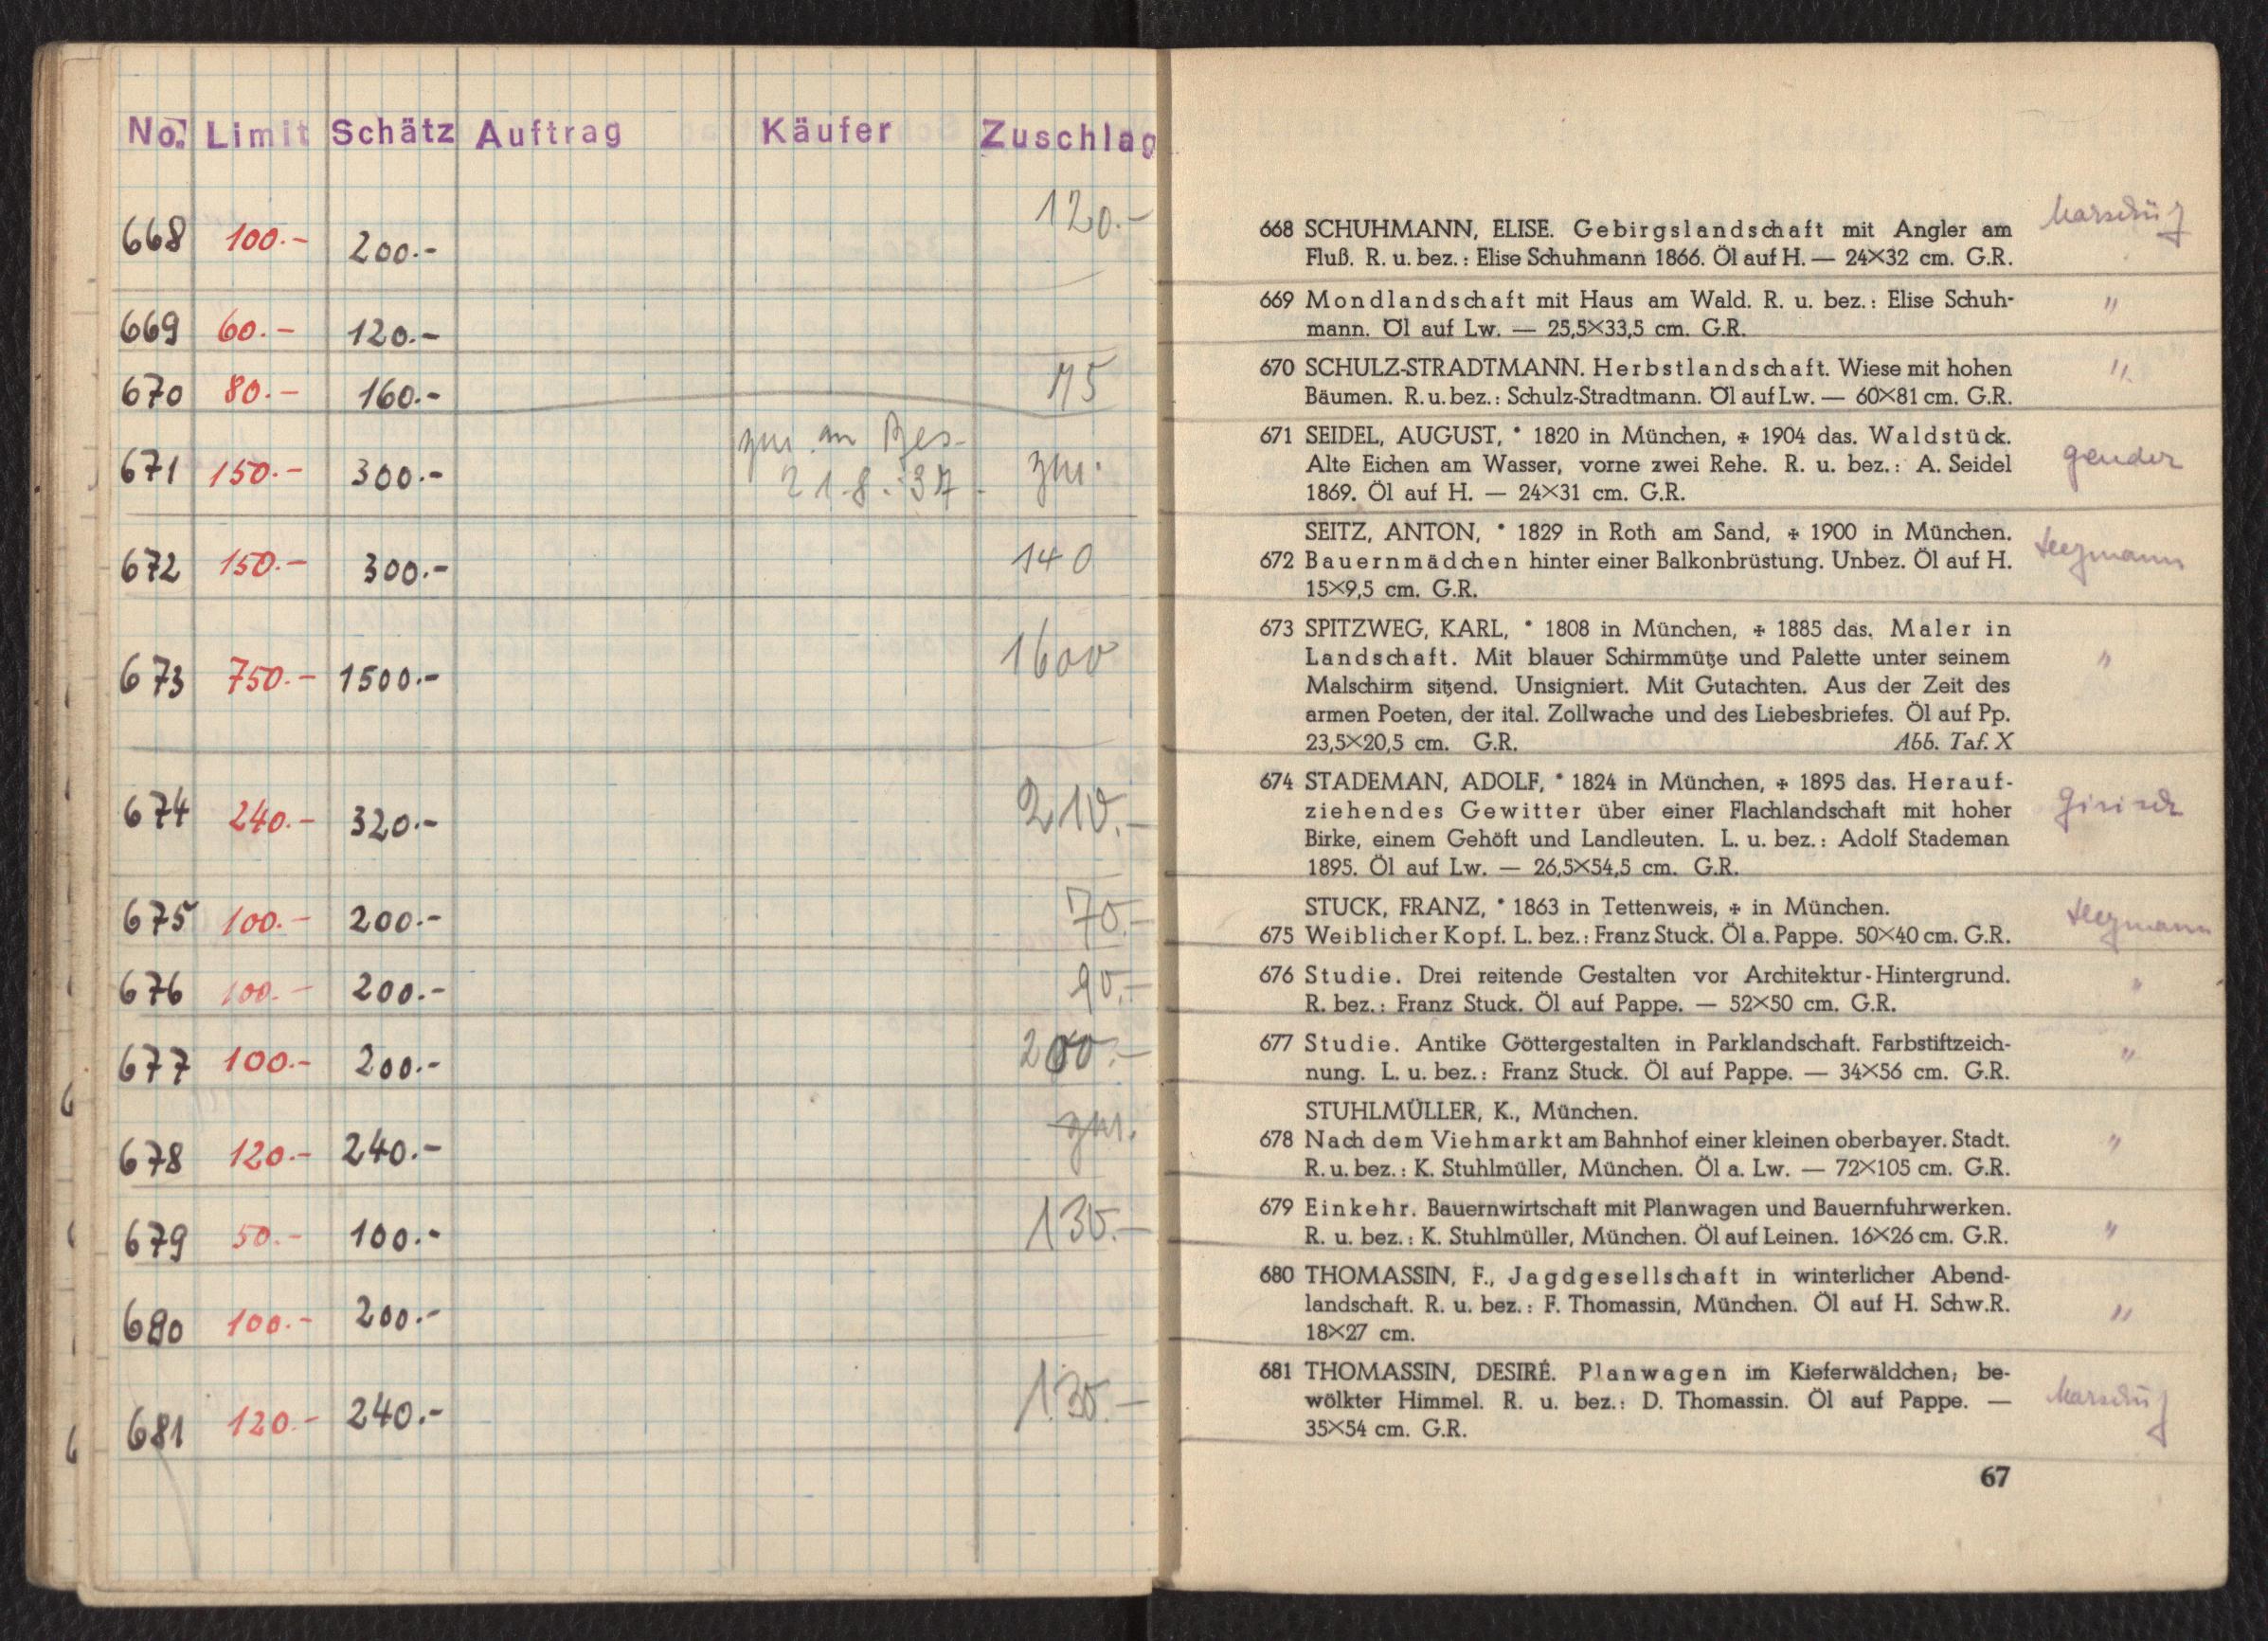 No. Limit Schätz Auftrag Käufer Zuschlag
668 100.- 200.- 120.-
669 60.- 120.-
670 80.- 160.- 75
671 150.- 300.- zur. an Bes- zur.
21.8.37.
672 150.- 300.- 140
673 750.- 1500.- 1600
674 240.- 320.- 210.-
675 100.- 200.- 70.-
676 100.- 200.- 90.-
677 100.- 200.- 200.-
678 120.- 240.- zur.
679 50.- 100.- 130.-
680 100.- 200.-
681 120.- 240.- 130.-
668 SCHUHMANN, ELISE. Gebirgslandschaft mit Angler am
Fluß. R. u. bez.: Elise Schuhmann 1866. Öl auf H. — 24×32 cm. G.R.
669 Mondlandschaft mit Haus am Wald. R. u. bez.: Elise Schuh-
mann. Öl auf Lw. — 25,5×33,5 cm. G.R.
"
670 SCHULZ-STRADTMANN. Herbstlandschaft. Wiese mit hohen
Bäumen. R. u. bez.: Schulz-Stradtmann. Öl auf Lw. — 60×81 cm. G.R.
"
671 SEIDEL, AUGUST, * 1820 in München, ✠ 1904 das. Waldstück.
Alte Eichen am Wasser, vorne zwei Rehe. R. u. bez.: A. Seidel
1869. Öl auf H. — 24×31 cm. G.R.
SEITZ, ANTON, * 1829 in Roth am Sand, ✠ 1900 in München.
672 Bauernmädchen hinter einer Balkonbrüstung. Unbez. Öl auf H.
15×9,5 cm. G.R.
673 SPITZWEG, KARL, * 1808 in München, ✠ 1885 das. Maler in
Landschaft. Mit blauer Schirmmütze und Palette unter seinem
Malschirm sitzend. Unsigniert. Mit Gutachten. Aus der Zeit des
armen Poeten, der ital. Zollwache und des Liebesbriefes. Öl auf Pp.
23,5×20,5 cm. G.R. Abb. Taf. X
"
674 STADEMAN, ADOLF, * 1824 in München, ✠ 1895 das. Herauf-
ziehendes Gewitter über einer Flachlandschaft mit hoher
Birke, einem Gehöft und Landleuten. L. u. bez.: Adolf Stademan
1895. Öl auf Lw. — 26,5×54,5 cm. G.R.
STUCK, FRANZ, * 1863 in Tettenweis, ✠ in München.
675 Weiblicher Kopf. L. bez.: Franz Stuck. Öl a. Pappe. 50×40 cm. G.R.
676 Studie. Drei reitende Gestalten vor Architektur-Hintergrund.
R. bez.: Franz Stuck. Öl auf Pappe. — 52×50 cm. G.R.
"
677 Studie. Antike Göttergestalten in Parklandschaft. Farbstiftzeich-
nung. L. u. bez.: Franz Stuck. Öl auf Pappe. — 34×56 cm. G.R.
"
STUHLMÜLLER, K., München.
678 Nach dem Viehmarkt am Bahnhof einer kleinen oberbayer. Stadt.
R. u. bez.: K. Stuhlmüller, München. Öl a. Lw. — 72×105 cm. G.R.
"
679 Einkehr. Bauernwirtschaft mit Planwagen und Bauernfuhrwerken.
R. u. bez.: K. Stuhlmüller, München. Öl auf Leinen. 16×26 cm. G.R.
"
680 THOMASSIN, F., Jagdgesellschaft in winterlicher Abend-
landschaft. R. u. bez.: F. Thomassin, München. Öl auf H. Schw.R.
18×27 cm.
"
681 THOMASSIN, DESIRÉ. Planwagen im Kieferwäldchen, be-
wölkter Himmel. R. u. bez.: D. Thomassin. Öl auf Pappe. —
35×54 cm. G.R.
67